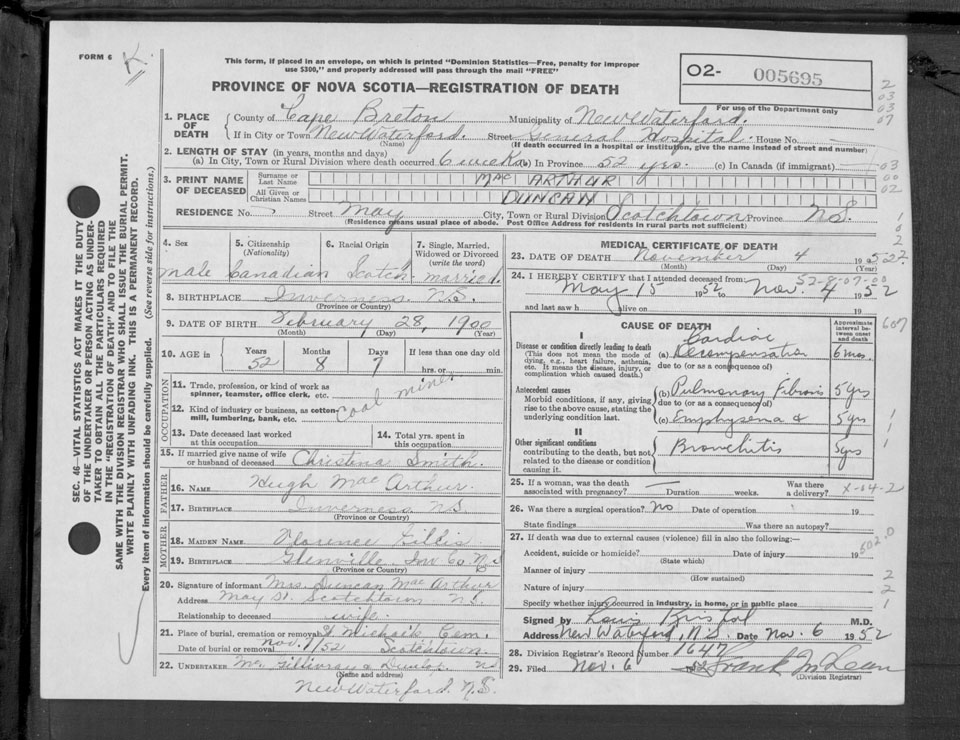 FORM 6
K.
This form, if placed in an envelope, on which is printed "Dominion Statistics—Free, penalty for improper
use $300," and properly addressed will pass through the mail "FREE"
PROVINCE OF NOVA SCOTIA—REGISTRATION OF DEATH
O2- 005695
For use of the Department only
2
03
03
07
1. PLACE OF DEATH
County of Cape Breton Municipality of New Waterford.
If in City or Town New Waterford. Street General Hospital House No.
(Name) (If death occurred in a hospital or institution, give the name instead of street and number)
2. LENGTH OF STAY (in years, months and days)
(a) In City, Town or Rural Division where death occurred 6 weeks (b) In Province 52 yrs. (c) In Canada (if immigrant)
03
00
02
3. PRINT NAME OF DECEASED
Surname or Last Name MAC ARTHUR
All Given or Christian Names DUNCAN
RESIDENCE No. Street May City, Town or Rural Division Scotchtown Province N.S.
(Residence means usual place of abode. Post Office Address for residents in rural parts not sufficient)
4. Sex
male
5. Citizenship
(Nationality)
Canadian
6. Racial Origin
Scotch
7. Single, Married, Widowed or Divorced
(write the word)
married.
8. BIRTHPLACE Inverness N.S.
(Province or Country)
9. DATE OF BIRTH February 28, 1900
(Month) (Day) (Year)
10. AGE in Years 52 Months 8 Days 7 If less than one day old
hrs. or min.
OCCUPATION
11. Trade, profession, or kind of work as
spinner, teamster, office clerk, etc.
coal miner
12. Kind of industry or business, as cotton-
mill, lumbering, bank, etc.
13. Date deceased last worked
at this occupation
14. Total yrs. spent in
this occupation
15. If married give name of wife
or husband of deceased Christina Smith.
FATHER
16. NAME Hugh MacArthur
17. BIRTHPLACE Inverness N.S.
(Province or Country)
MOTHER
18. MAIDEN NAME Florence Gillis
19. BIRTHPLACE Glenville Inv Co. N.S
(Province or Country)
20. Signature of informant Mrs. Duncan MacArthur
Address May St. Scotchtown N.S.
Relationship to deceased wife.
21. Place of burial, cremation or removal St Michael's Cem.
Date of burial or removal Nov. 7/52 Scotchtown.
22. UNDERTAKER Mc Gillivray & Dunlop NS
(Name and address)
New Waterford. N.S.
MEDICAL CERTIFICATE OF DEATH
23. DATE OF DEATH November 4 1952
(Month) (Day) (Year)
24. I HEREBY CERTIFY that I attended deceased from:
May 15 1952 to Nov. 4 1952
and last saw h alive on 19
607
CAUSE OF DEATH
Approximate interval between onset and death
I
Disease or condition directly leading to death
(This does not mean the mode of dying, e.g., heart failure, asthenia, etc. It means the disease, injury, or complication which caused death.)
(a) Cardiac Decompensation 6 mos.
due to (or as a consequence of)
Antecedent causes
Morbid conditions, if any, giving rise to the above cause, stating the underlying condition last.
(b) Pulmonary Fibrosis 5 yrs
due to (or as a consequence of)
(c) Emphysema & 5 yrs
II
Other significant conditions
contributing to the death, but not related to the disease or condition causing it.
Bronchitis 5 yrs
25. If a woman, was the death
associated with pregnancy? — Duration weeks. Was there
a delivery?
X-04-2
26. Was there a surgical operation? No Date of operation 19
State findings Was there an autopsy?
27. If death was due to external causes (violence) fill in also the following:—
Accident, suicide or homicide? Date of injury 19
(State which)
502.0
Manner of injury
(How sustained)
Nature of injury
Specify whether injury occurred in industry, in home, or in public place
2
2
1
Signed by Louis Bristol M.D.
Address New Waterford, N.S. Date Nov. 6 1952
28. Division Registrar's Record Number 1647
29. Filed Nov. 6 1952 Frank McLean
(Division Registrar)
SEC. 46—VITAL STATISTICS ACT MAKES IT THE DUTY
OF THE UNDERTAKER OR PERSON ACTING AS UNDER-
TAKER TO OBTAIN ALL THE PARTICULARS REQUIRED
IN THE "REGISTRATION OF DEATH" AND TO FILE THE
SAME WITH THE DIVISION REGISTRAR WHO SHALL ISSUE THE BURIAL PERMIT.
WRITE PLAINLY WITH UNFADING INK. THIS IS A PERMANENT RECORD.
Every item of information should be carefully supplied. (See reverse side for instructions.)